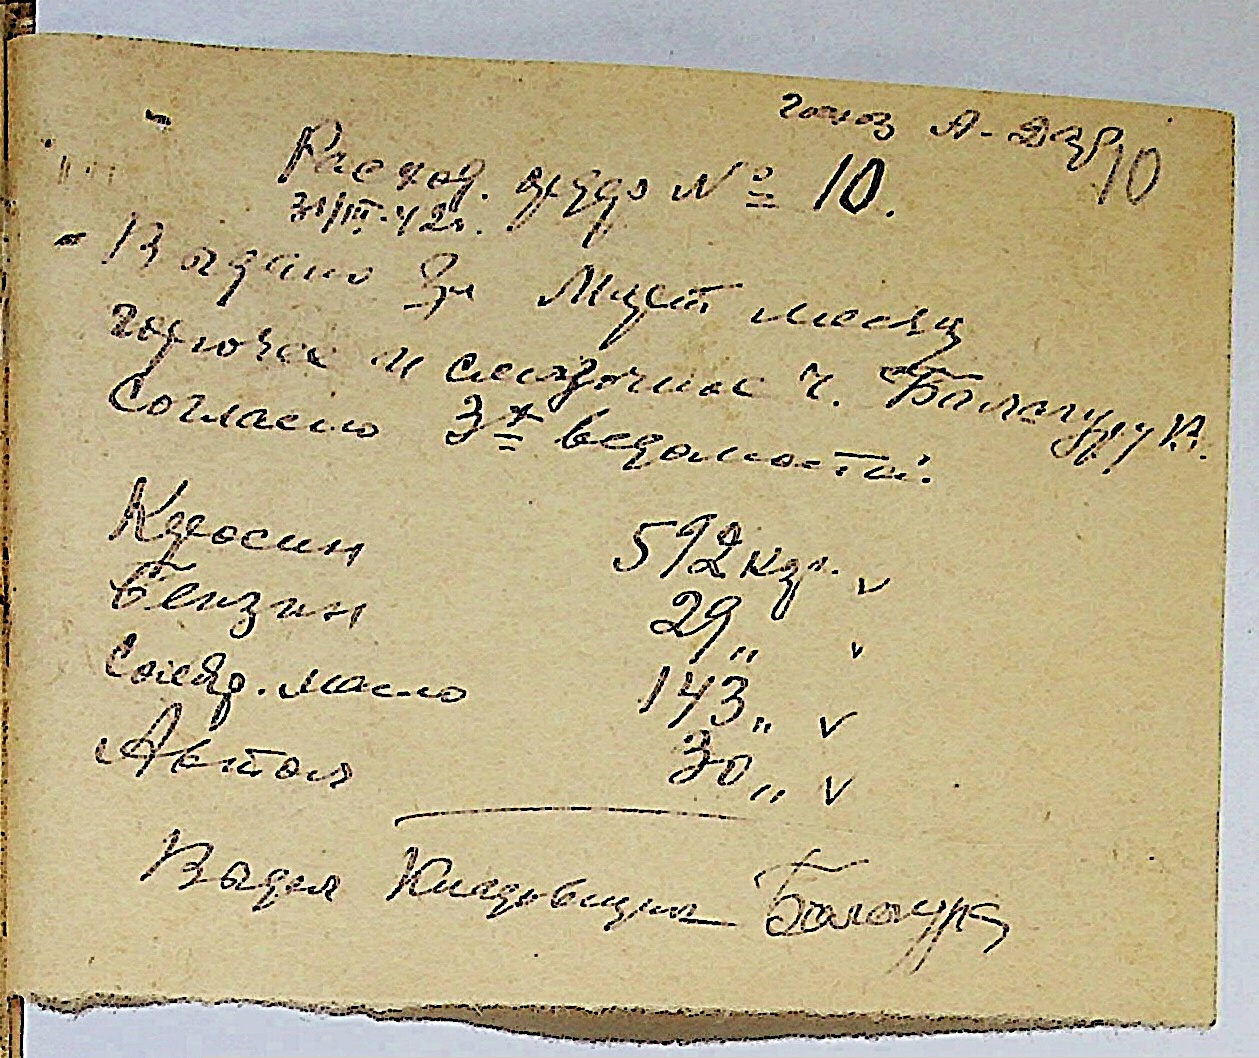 10
Расход. ордер № 10.
31/III-42г.
Выдано За Март месяц
горючее и смазочное ч. Балагуру К.
Согласно 3х ведомостей.
Керосин 592 кгр. v
Бензин 29 „ v
Соляр. масло 143 „ v
Автол 30 „ v
Выдал Кладовщик Балагура